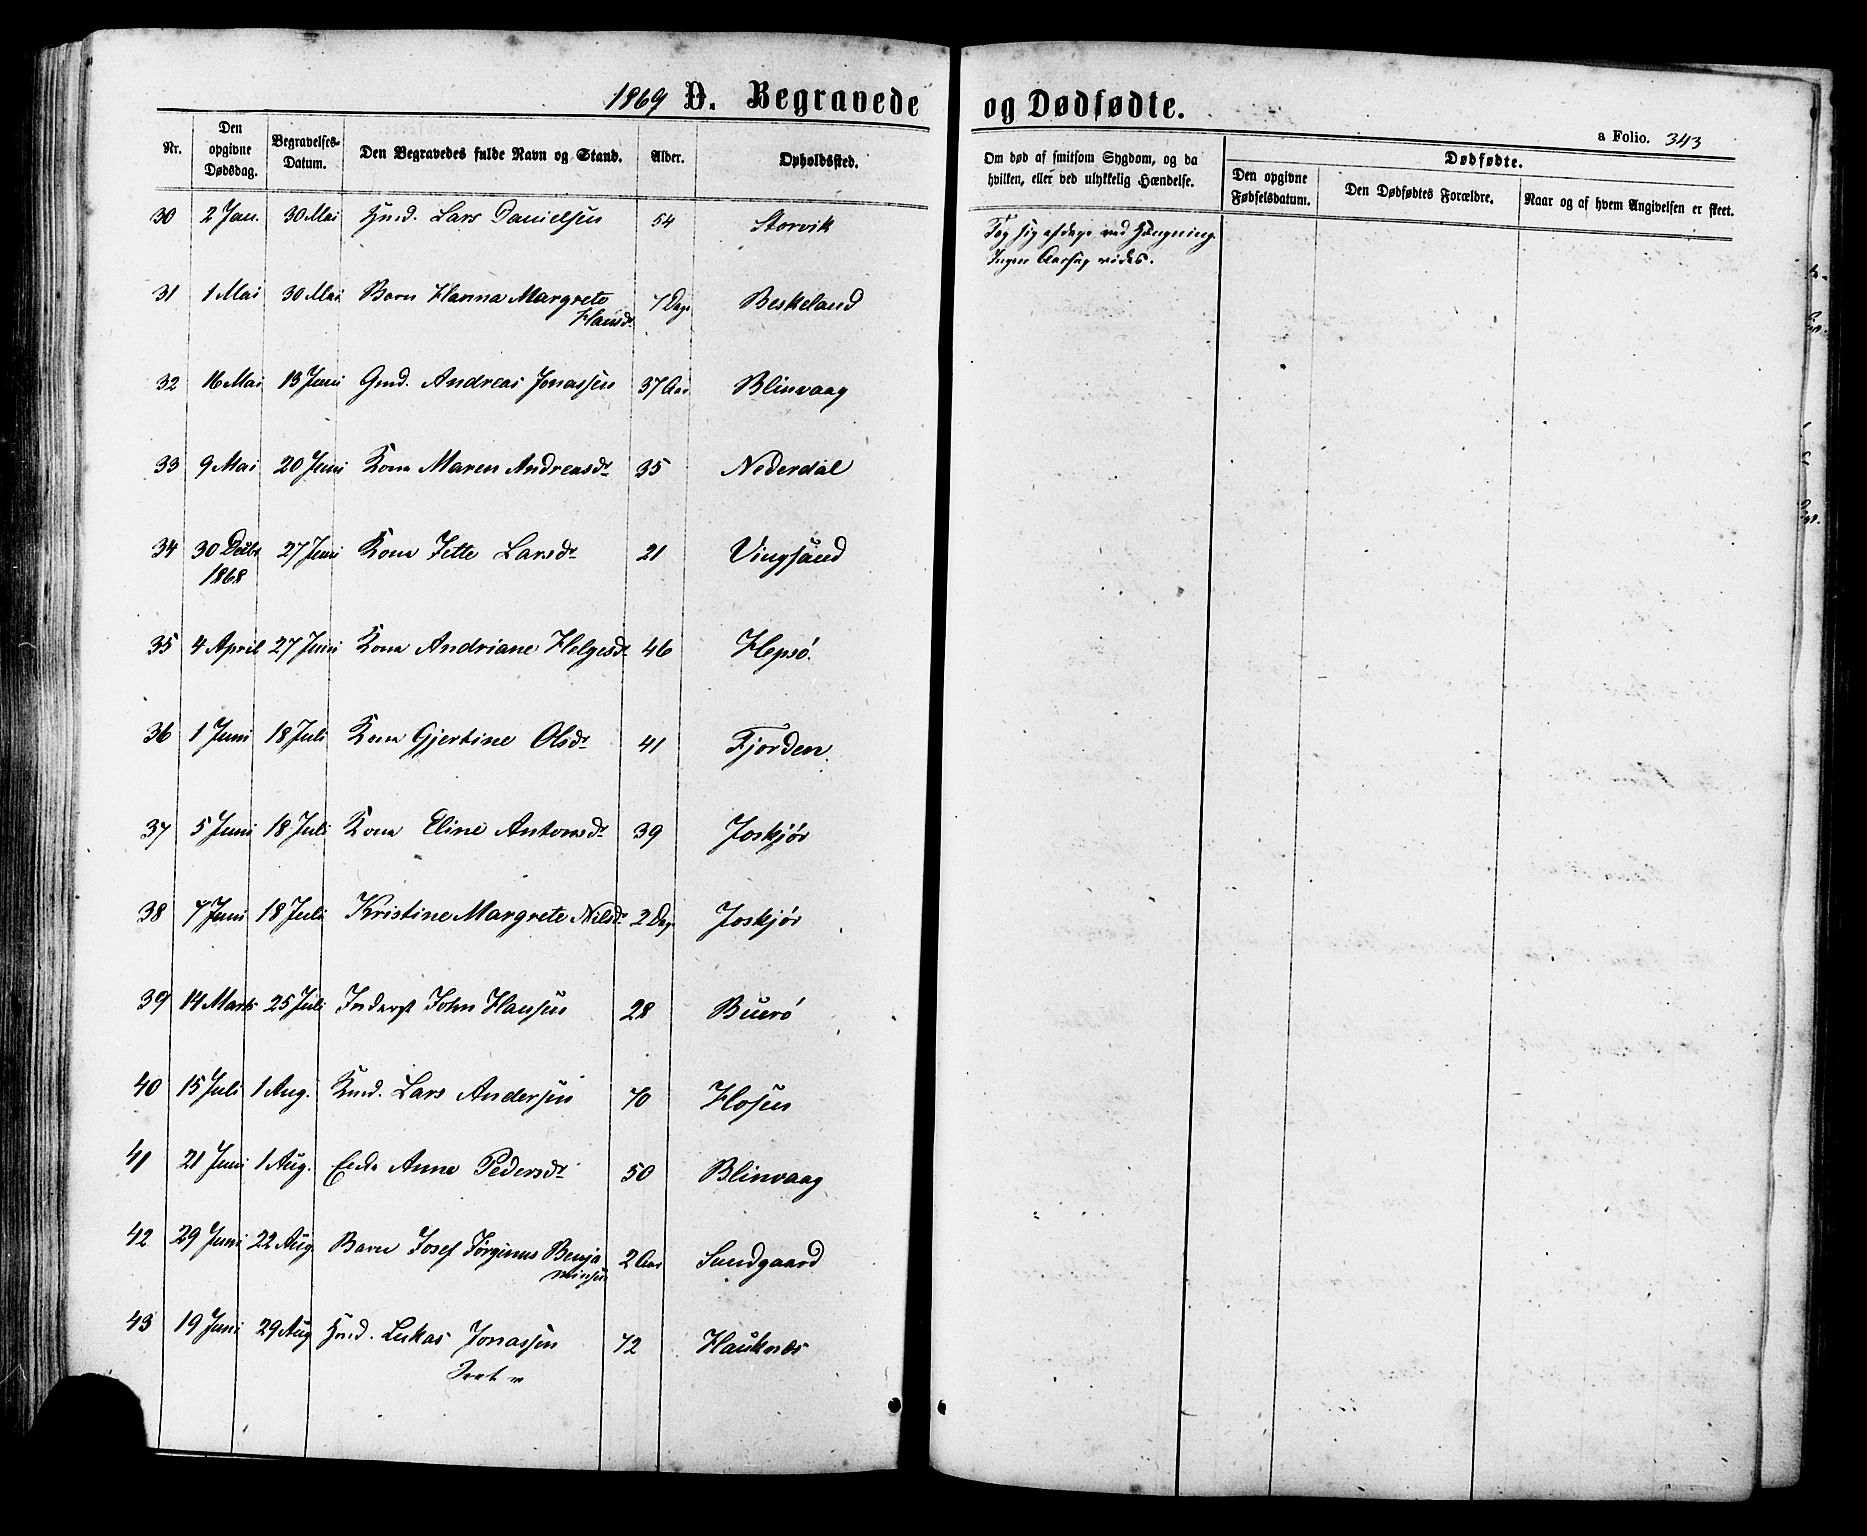 1869 D. Begravede og Dødfødte.
a Folio. 343
Nr. Den opgivne Dødsdag. Begravelses-Datum. Den Begravedes fulde Navn og Stand. Alder. Opholdssted. Om død af smitsom Sygdom, og da hvilken, eller ved ulykkelig Hændelse. Dødfødte. Den opgivne Fødselsdatum. Den Dødfødtes Forældre. Naar og af hvem Angivelsen er skeet.
30 2 Jan. 30 Mai Lars Danielsen 54 Storvik Tog sig afdage ved Hængning.
Ingen Aarsag vides.
31 1 Mai 30 Mai Barn Hanna Margrete 7 Dage Beskeland
Hansdr
32 16 Mai 13 Juni Gmd. Andreas Jonassen 37 Aar Blinvaag
33 9 Mai 20 Juni Kone Maren Andreasdr 35 Nederdal
34 30 Decbr 27 Juni Kone Jette Larsdr 21 Vingsand
1868
35 4 April 27 Juni Kone Andriane Helgesdr 46 Hepsö.
36 1 Juni 18 Juli Kone Gjertine Olsdr 41 Fjorden.
37 5 Juni 18 Juli Kone Eline Antonsdr 39 Joskjør
38 7 Juni 18 Juli Kristine Margrete Nilsdr 2 Dage Joskjør
39 14 Marts 25 Juli Inderst John Hansen 28 Buerö
40 15 Juli 1 Aug. Kmd. Lars Andersen 70 Hosen
41 21 Juni 1 Aug. Enke Anne Pedersdr 50 Blinvaag
42 29 Juni 22 Aug. Barn Josef Jørginus Benja 2 Aar Sundgaard
minsen
43 19 Juni 29 Aug Lukas Jonassen 72 Hauknæs